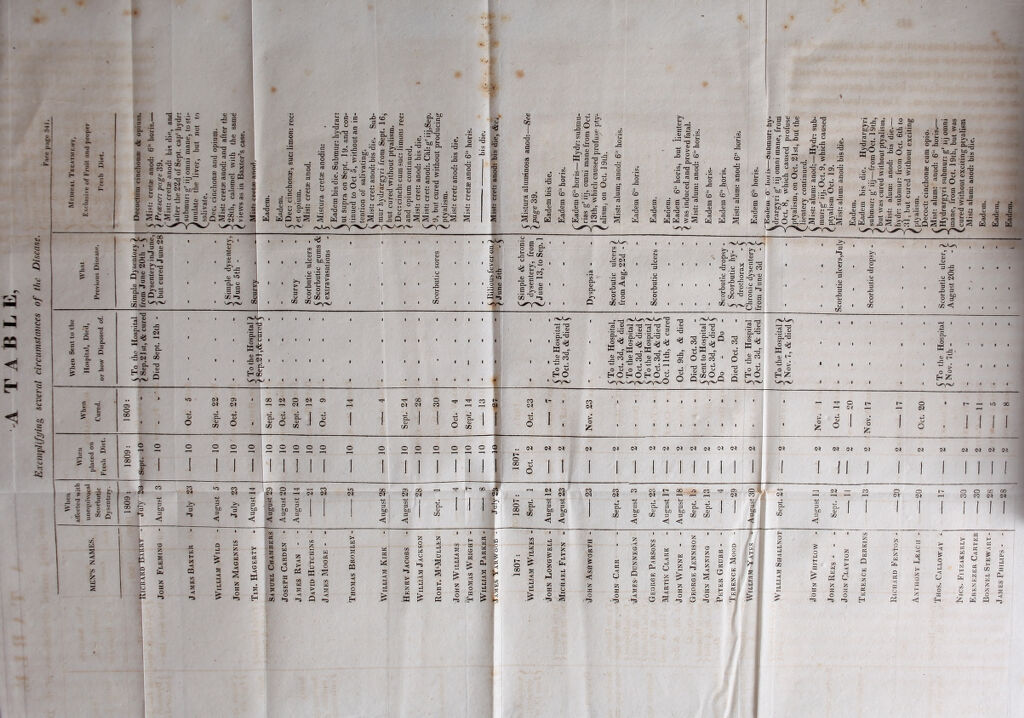 A TABLE,
Exemplifying several circumstances of the Disease,
(See page 34).
MEN'S NAMES.
When affected with unequivocal Scorbutic Dysentery.
When placed on Fresh Diet.
When Cured.
When Sent to the Hospital, Died, or how Disposed of.
What Previous Disease.
MEDICAL TREATMENT, Exclusive of Fruit and proper Fresh Diet.
1809: 1809: 1809:
RICHARD BARRY - July 29 Sept. 10 - To the Hospital Sep. 21st, & cured Simple Dysentery from June 20th - Decoctum cinchonæ & opium. Mist: cretæ anod: 6s horis.—
JOHN FLEMING - August 3 — 10 - Died Sept. 12th - Dysentery in June, but cured June 28 See page 39.
JAMES BAXTER - July 23 — 10 Oct. 5 - - Mist: cretæ anod: bis die, and after the 22d of Sept. cap: hydr: submur: g. iij omni mane, to stimulate the liver, but not to salivate.
WILLIAM WILD August 5 — 10 Sept. 22 - - Dec: cinchonæ and opium.
JOHN MAGENNIS July 23 — 10 Oct. 29 - Simple dysentery, June 5th - Mist: cretæ anod: and after the 28th, calomel with the same views as in Baxter's case.
TIM. HAGERTY - August 14 — 10 - To the Hospital Sep. 21, & cured Scurvy - Mist: cretæ anod.
SAMUEL CHAMBERS August 29 — 10 Sept. 18 - - Eadem.
JOSEPH CARDEN August 20 — 10 Oct. 12 - - Eadem.
JAMES RYAN - August 14 — 10 Sept. 20 - Scurvy - Dec: cinchonæ, suc: limon: rec: et opium.
DAVID HUTCHINS — 21 — 10 — 12 - Scorbutic ulcers - Mist: cretæ anod.
JAMES MOORE - — 23 — 10 Oct. 9 - Scorbutic gums & extravasations Mistura cretæ anodin:
THOMAS BROMLEY - — 25 — 10 — 14 - - Eadem bis die. Submur: hydrar: ut supra on Sept. 19, and continued to Oct. 5, without an intention of salivating.
WILLIAM KIRK - August 28 — 10 — 4 - - Mist: cret: anod: bis die. Submur: hydrargyri from Sept. 16, but cured without ptyalism.
HENRY JACOBS - August 29 — 10 Sept. 24 - - Dec: cinch: cum suc: limon: rec: et opium continued.
WILLIAM JACKSON — 28 — 10 — 28 - - Mist: cret: anod: bis die.
ROBT. McMULLEN Sept. 1 — 10 — 30 - Scorbutic sores Mist: cret: anod: Cal: g. iij, Sep. 9, but cured without producing ptyalism.
JOHN WILLIAMS — 4 — 10 Oct. 4 - - Mist: cret: anod: bis die.
THOMAS WRIGHT - — 7 — 10 Sept. 14 - - Mist: cretæ anod: 6s horis.
WILLIAM PARKER - — 8 — 10 — 13 - - bis die.
JAMES YARWOOD - July 29 — 10 — 27 - Bilious fever on June 5th - Mist: cret: anod: bis die, &c.
1807: 1807:
WILLIAM WILKES - Sept. 1 Oct. 2 Oct. 23 - Simple & chronic dysentery, from June 13, to Sep. 1 Mistura aluminosa anod:—See page 39.
JOHN LONGWELL August 12 — 2 — 7 - - Eadem bis die.
MICHAEL FLYNN August 23 — 2 - To the Hospital Oct. 3d, & died - Eadem 6s horis.
JOHN ASHWORTH — 23 — 2 Nov. 23 - Dyspepsia - Eadem 6s horis:—Hydr: submurias g. iij, omni mane from Oct. 13th, which caused profuse ptyalism, on Oct. 19th.
JOHN CARR - Sept. 23 — 2 - To the Hospital, Oct. 3d, & died Scorbutic ulcers from Aug. 22d - Mist: alum: anod: 6s horis.
JAMES DUNNEGAN August 3 — 2 - To the Hospital Oct. 3d, & died - Eadem 6s horis.
GEORGE PARSONS Sept. 23 — 2 - To the Hospital Oct. 3d, & died Scorbutic ulcers - Eadem.
MARTIN CLARK - August 17 — 2 - Oct. 11th, & cured - Eadem.
JOHN WINNE - August 18 — 2 - Oct. 9th, & died - Eadem 6s horis: but lientery was induced and proved fatal.
GEORGE JENNISON Sept. 15 — 2 - Died Oct. 3d - Mist: alum: anod: 6s horis.
JOHN MANNING Sept. 13 — 2 - Sent to Hospital Oct. 3d, & died - Eadem 6s horis-
PETER GRUBB - — 4 — 2 - Do - Do - Scorbutic dropsy - Eadem 6s horis.
TERENCE MOOD — 29 — 2 - Died Oct. 3d Scorbutic hydrothorax Mist: alum: anod: 6s horis.
WILLIAM YATES August 30 — 2 - To the Hospital Oct. 3d, & died Chronic dysentery from June 3d Eadem 6s horis.
WILLIAM SHALLNOT Sept. 21 — 2 - To the Hospital Nov. 7, & died - Eadem 6 horis:—Submur: hydrargyri g. iij omni mane, from Oct. 8, which caused profuse ptyalism, on Oct. 21st, but the lientery continued.
JOHN WHITLOW August 11 — 2 Nov. 1 - - Mist: alum: anod:—Hydr: submur: g. iij, Oct. 9, which caused ptyalism Oct. 19.
JOHN REES - Sept. 12 — 2 Oct. 14 - Scorbutic ulcers, July Mist: alum: anod: bis die.
JOHN CLAYTON — 11 — 2 — 20 - - Eadem.
TERENCE DERRINS — 13 — 2 Nov. 17 - Scorbutic dropsy - Eadem bis die. Hydrargyri submur: g. iij from Oct. 19th, but was cured without ptyalism.
RICHARD FENTON - — 20 — 2 — 17 - - Mist: alum: anod: bis die: hydr: submur: from Oct. 6th to 31, but cured without exciting ptyalism.
ANTHONY LEACH - — 20 — 2 Oct. 20 - - Decoct: cinchonæ cum: opio.
THOS. CALLOWAY - — 17 — 2 - To the Hospital Nov. 7th Scorbutic ulcer, August 20th Mist: alum: anod: 6s horis.—Hydrargyri submur: g. iij omni mane, from October, but was cured without exciting ptyalism
NICS. FITZAKERLY — 30 — 2 — 7 - - Mist: alum: anod: bis die.
EBENEZER CARTER — 30 — 2 — 11 - - Eadem.
BONNIL STEWART - — 28 — 2 — 5 - - Eadem.
JAMES PHILIPS - — 28 — 2 — 8 - - Eadem.